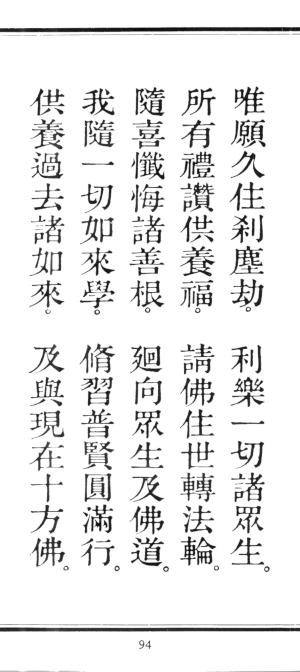 唯願久住剎塵劫。利樂一切諸眾生。
所有禮讚供養福。請佛住世轉法輪。
隨喜懺悔諸善根。廻向眾生及佛道。
我隨一切如來學。脩習普賢圓滿行。
供養過去諸如來。及與現在十方佛。
94